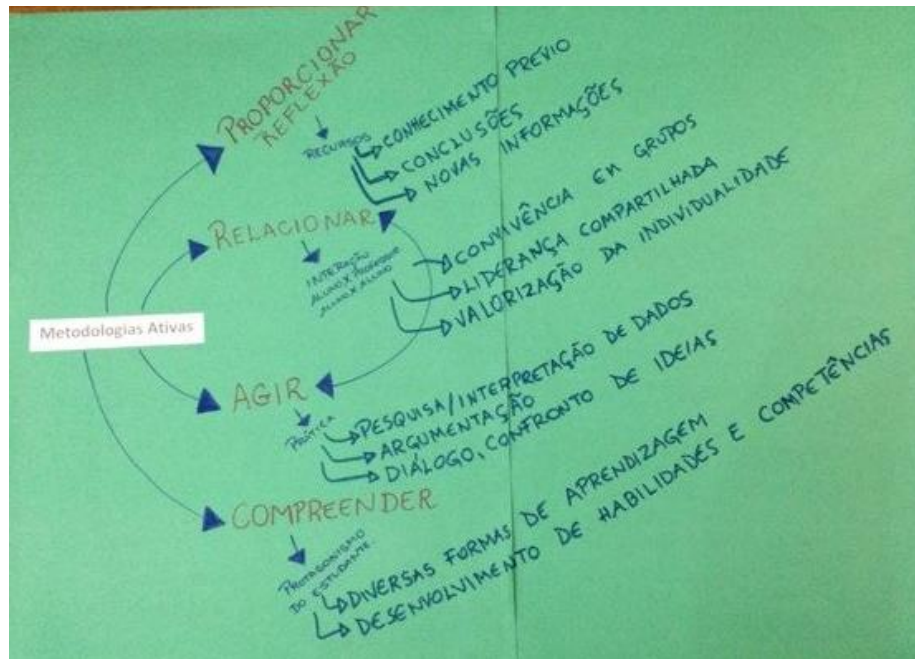 PROPORCIONAR
REFLEXÃO
RECURSOS
CONHECIMENTO PRÉVIO
CONCLUSÕES
NOVAS INFORMAÇÕES
RELACIONAR
INTERAÇÃO
ALUNO X PROFESSOR
ALUNO X ALUNO
CONVIVÊNCIA EM GRUPOS
LIDERANÇA COMPARTILHADA
VALORIZAÇÃO DA INDIVIDUALIDADE
Metodologias Ativas
AGIR
PRÁTICA
PESQUISA/INTERPRETAÇÃO DE DADOS
ARGUMENTAÇÃO
DIÁLOGO, CONFRONTO DE IDEIAS
COMPREENDER
PROTAGONISMO
DO ESTUDANTE.
DIVERSAS FORMAS DE APRENDIZAGEM
DESENVOLVIMENTO DE HABILIDADES E COMPETÊNCIAS